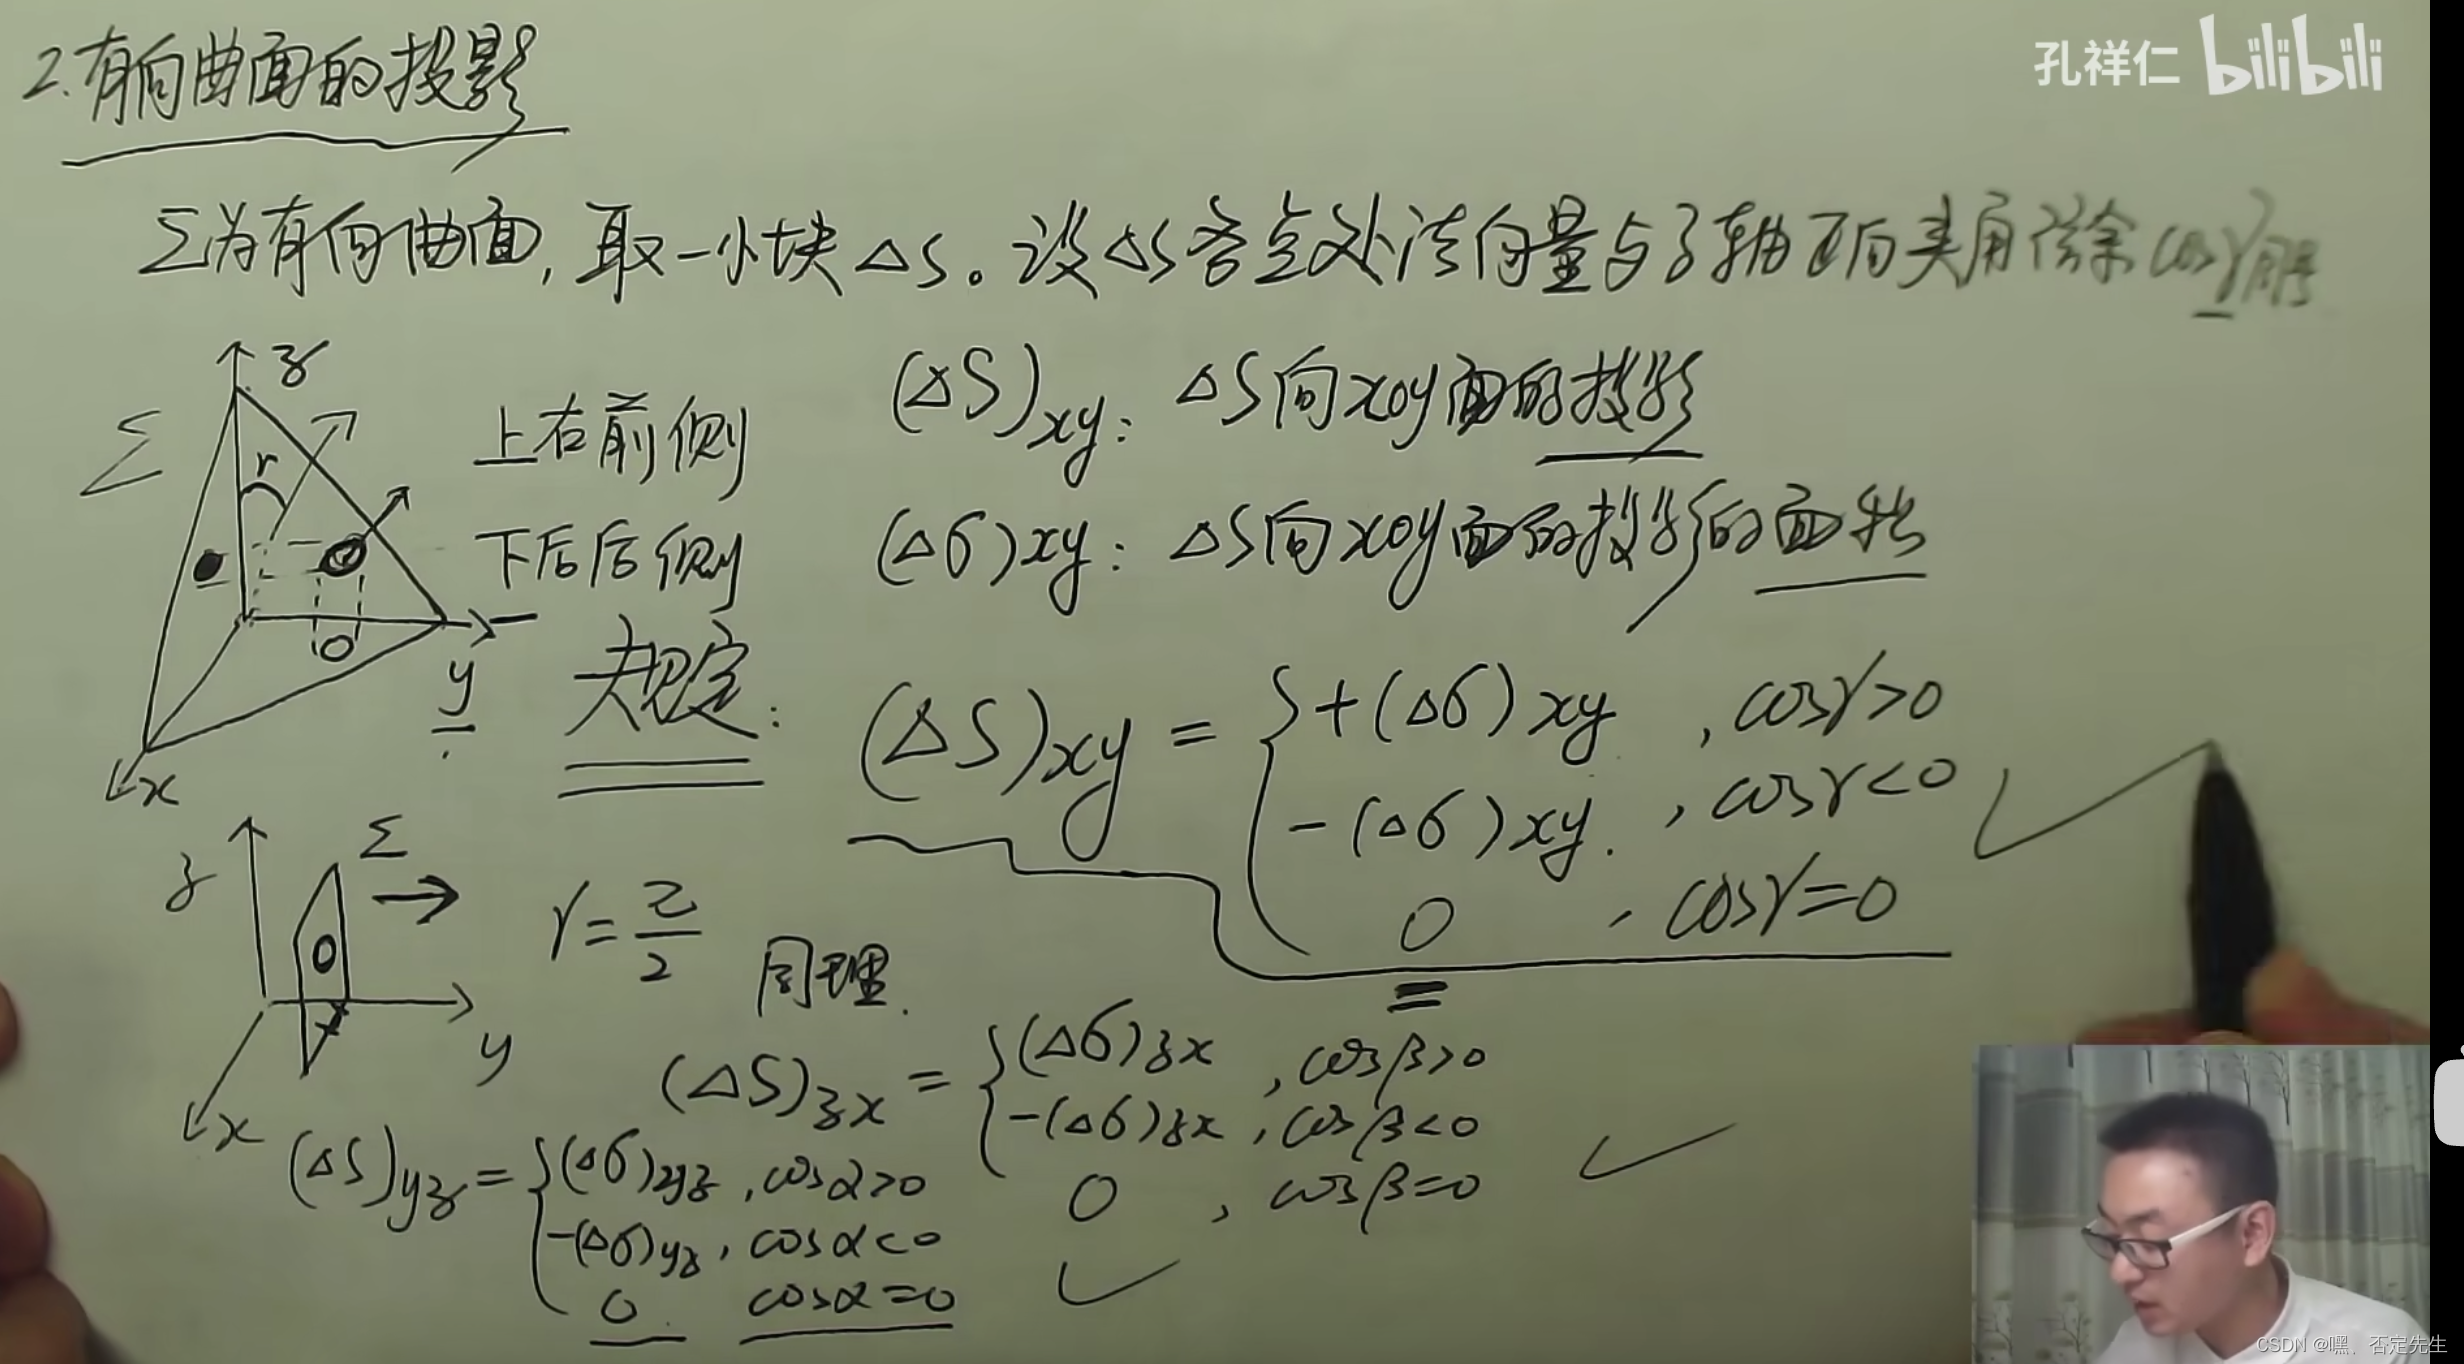 2.有向曲面的投影
孔祥仁 bilibili
Σ为有向曲面,取一小块ΔS。设ΔS各点处法向量与z轴正向夹角余 cosγ同号
z
Σ
r
上右前侧
下后后侧
y
x
(ΔS)xy: ΔS向xoy面的投影
(Δσ)xy: ΔS向xoy面的投影的面积
规定:
(ΔS)xy = { +(Δσ)xy , cosγ>0
-(Δσ)xy. , cosγ<0
0 , cosγ=0
z
Σ
y
x
γ=π/2
同理.
(ΔS)zx = { (Δσ)zx , cosβ>0
-(Δσ)zx , cosβ<0
0 , cosβ=0
(ΔS)yz = { (Δσ)yz , cosα>0
-(Δσ)yz , cosα<0
0 cosα=0
CSDN @嘿、否定先生